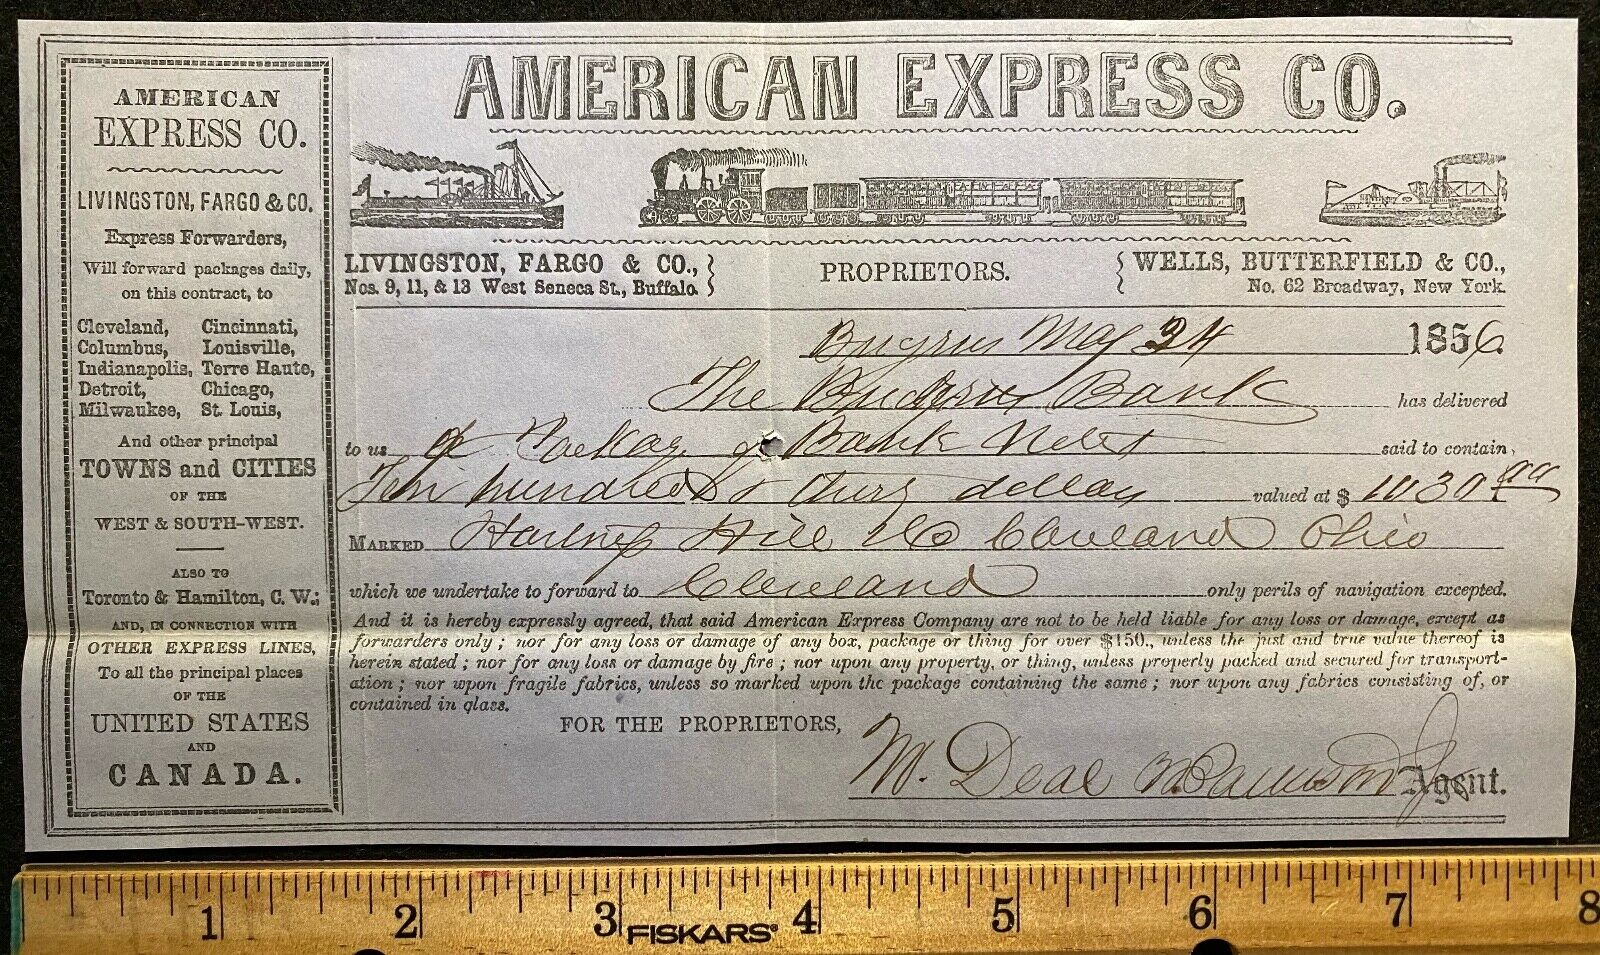 AMERICAN
EXPRESS CO.
LIVINGSTON, FARGO & CO.
Express Forwarders,
Will forward packages daily,
on this contract, to
Cleveland, Cincinnati,
Columbus, Louisville,
Indianapolis, Terre Haute,
Detroit, Chicago,
Milwaukee, St. Louis,
And other principal
TOWNS and CITIES
OF THE
WEST & SOUTH-WEST.
ALSO TO
Toronto & Hamilton, C. W.;
AND, IN CONNECTION WITH
OTHER EXPRESS LINES,
To all the principal places
OF THE
UNITED STATES
AND
CANADA.
AMERICAN EXPRESS CO.
LIVINGSTON, FARGO & CO., PROPRIETORS. WELLS, BUTTERFIELD & CO.,
Nos. 9, 11, & 13 West Seneca St., Buffalo. No. 62 Broadway, New York.
May 24 1856
The Bank has delivered
to us a Package of Bank Notes said to contain,
Ten hundred & thirty dollars valued at $ 1030
MARKED Hill & Co Cleveland Ohio
which we undertake to forward to Cleveland only perils of navigation excepted.
And it is hereby expressly agreed, that said American Express Company are not to be held liable for any loss or damage, except as
forwarders only; nor for any loss or damage of any box, package or thing for over $150., unless the just and true value thereof is
herein stated; nor for any loss or damage by fire; nor upon any property, or thing, unless properly packed and secured for transport-
ation; nor upon fragile fabrics, unless so marked upon the package containing the same; nor upon any fabrics consisting of, or
contained in glass.
FOR THE PROPRIETORS,
M. Deal Agent.
1 2 3 FISKARS® 4 5 6 7 8